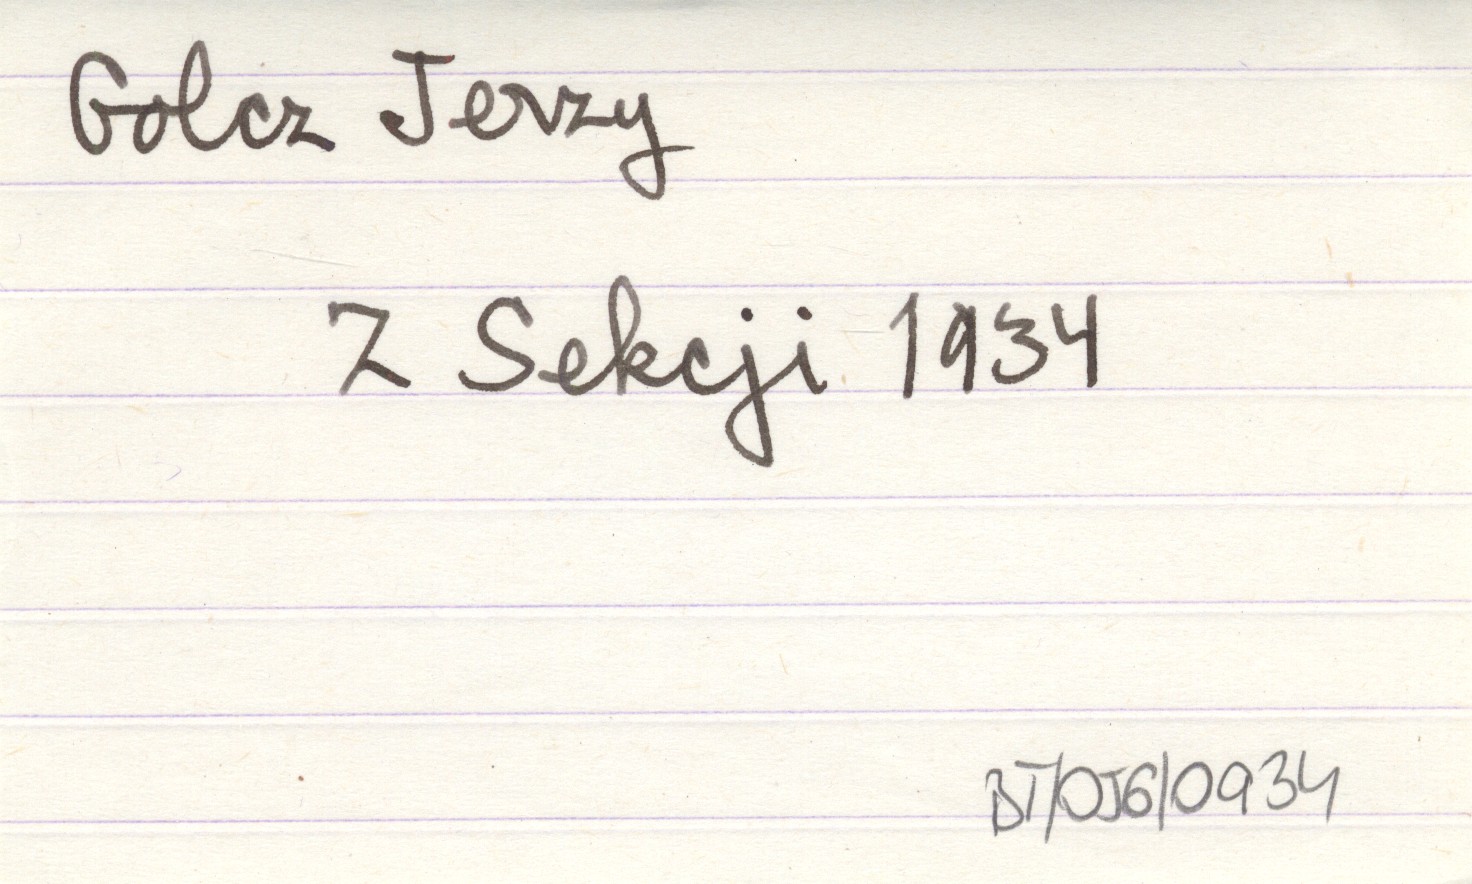 Golcz Jerzy
Z Sekcji 1934
BT/OJG/0934